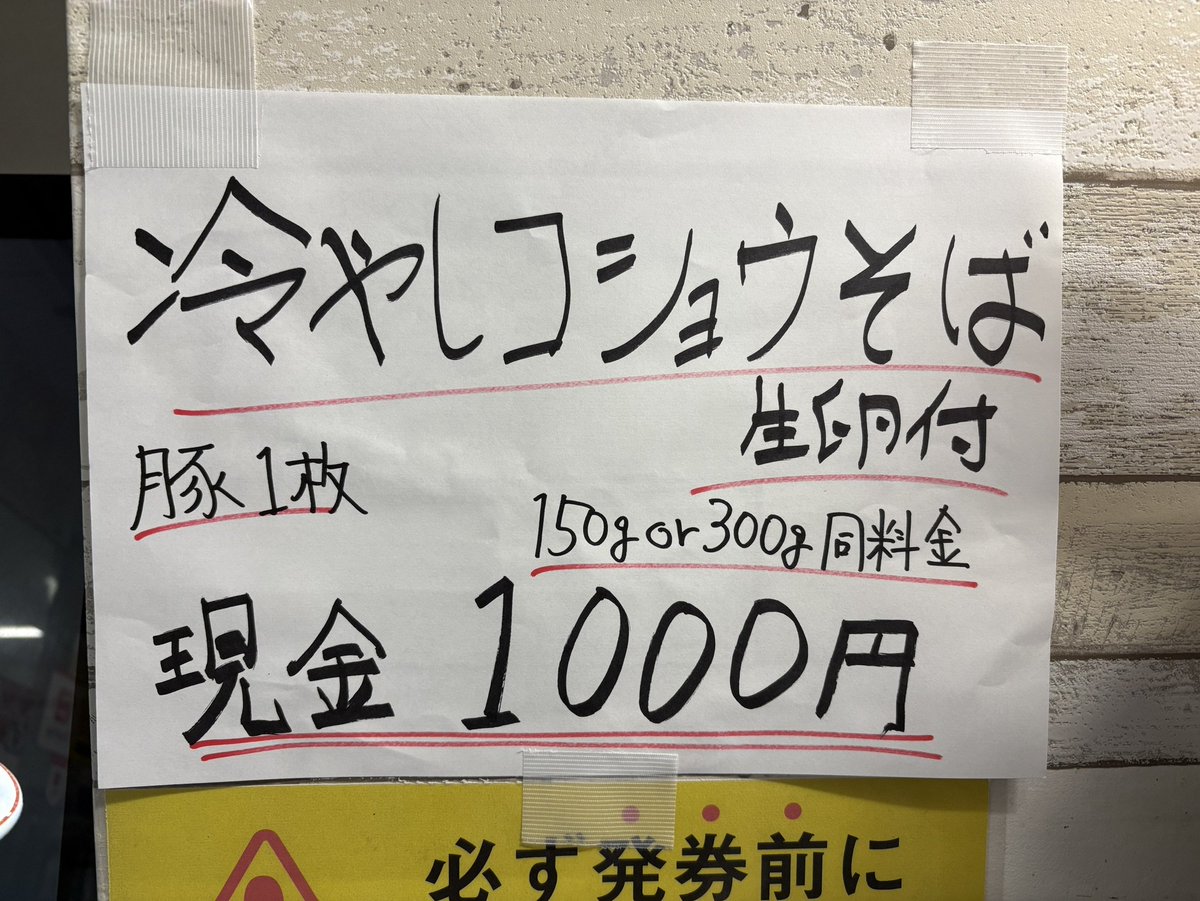 冷やしコショウそば
生卵付
豚1枚
150gor300g同料金
現金1000円
必ず発券前に